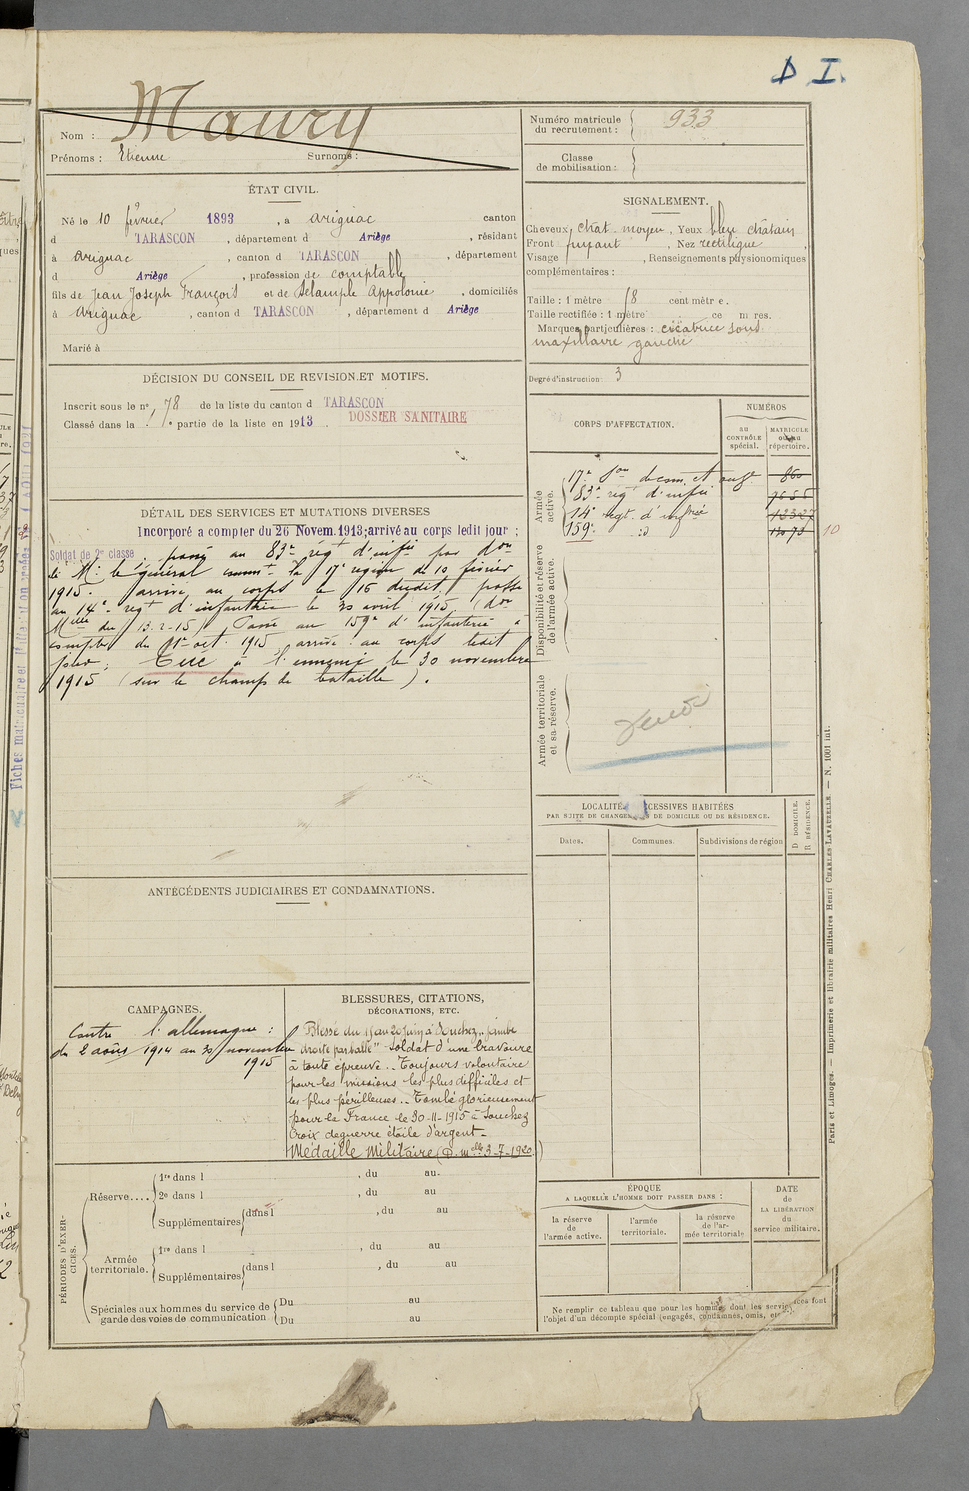 D I.
Maury
Nom :
Prénoms : Etienne Surnoms :
Numéro matricule du recrutement : 933
Classe de mobilisation :
ÉTAT CIVIL.
Né le 10 février 1893, à Arignac canton
d TARASCON, département d Ariège, résidant
à Arignac, canton d TARASCON, département
d Ariège, profession de comptable
fils de Jean Joseph François et de Delample Appolonie, domiciliés
à Arignac, canton d TARASCON, département d Ariège
Marié à
SIGNALEMENT.
Cheveux chat. moyen, Yeux bleu châtain
Front fuyant, Nez rectiligne,
Visage, Renseignements physionomiques
complémentaires :
Taille : 1 mètre 68 centimètre.
Taille rectifiée : 1 mètre ce m res.
Marques particulières : cicatrice sous
maxillaire gauche
Degré d'instruction : 3
DÉCISION DU CONSEIL DE REVISION ET MOTIFS.
Inscrit sous le n° 78 de la liste du canton d TARASCON
Classé dans la 1re partie de la liste en 1913.
DOSSIER SANITAIRE
CORPS D'AFFECTATION.
NUMÉROS
au CONTRÔLE spécial.
MATRICULE ou au répertoire.
Armée active.
17e Son de com. et ouv 860
83e régt d'infie 7655
14e régt d'infrie 13327
159e d° 13073
10
Disponibilité et réserve de l'armée active.
Armée territoriale et sa réserve.
DÉTAIL DES SERVICES ET MUTATIONS DIVERSES
Incorporé a compter du 26 Novem. 1913; arrivé au corps ledit jour ;
Soldat de 2e classe. passé au 83e régt d'infie par don
de Mr le général commt la 17e region du 10 février
1915. arrivé au corps le 16 dudit. passé
au 14e régt d'infanterie le 30 avril 1915 (don
Mlle du 13.2.15) Passé au 159e d'infanterie à
compter du 1er oct. 1915, arrivé au corps ledit
jour; Tué à l'ennemi le 30 novembre
1915 (sur le champ de bataille).
LOCALITÉS SUCCESSIVES HABITÉES
PAR SUITE DE CHANGEMENTS DE DOMICILE OU DE RÉSIDENCE.
Dates. Communes. Subdivisions de région
D DOMICILE. R RÉSIDENCE.
ANTÉCÉDENTS JUDICIAIRES ET CONDAMNATIONS.
CAMPAGNES.
Contre l'allemagne :
du 2 août 1914 au 30 novembre
1915
BLESSURES, CITATIONS,
DÉCORATIONS, ETC.
Blessé du 15 au 20 Juin à Souchez "jambe
droite par balle" Soldat d'une bravoure
à toute épreuve.. Toujours volontaire
pour les missions les plus difficiles et
les plus périlleuses.. Tombé glorieusement
pour la France le 30-11-1915 à Souchez
Croix de guerre étoile d'argent -
Médaille Militaire (D. melle 3-7-1920)
PÉRIODES D'EXERCICES.
Réserve....
1re dans l, du au
2e dans l, du au
Supplémentaires dans l, du au
Armée territoriale.
1re dans l, du au
Supplémentaires dans l, du au
Spéciales aux hommes du service de garde des voies de communication
Du au
Du au
ÉPOQUE
A LAQUELLE L'HOMME DOIT PASSER DANS :
la réserve de l'armée active.
l'armée territoriale.
la réserve de l'armée territoriale
DATE DE LA LIBÉRATION du service militaire.
Ne remplir ce tableau que pour les hommes dont les services font
l'objet d'un décompte spécial (engagés, condamnés, omis, etc.).
Paris et Limoges. — Imprimerie et librairie militaires Henri CHARLES-LAVAUZELLE — N. 1001 int.